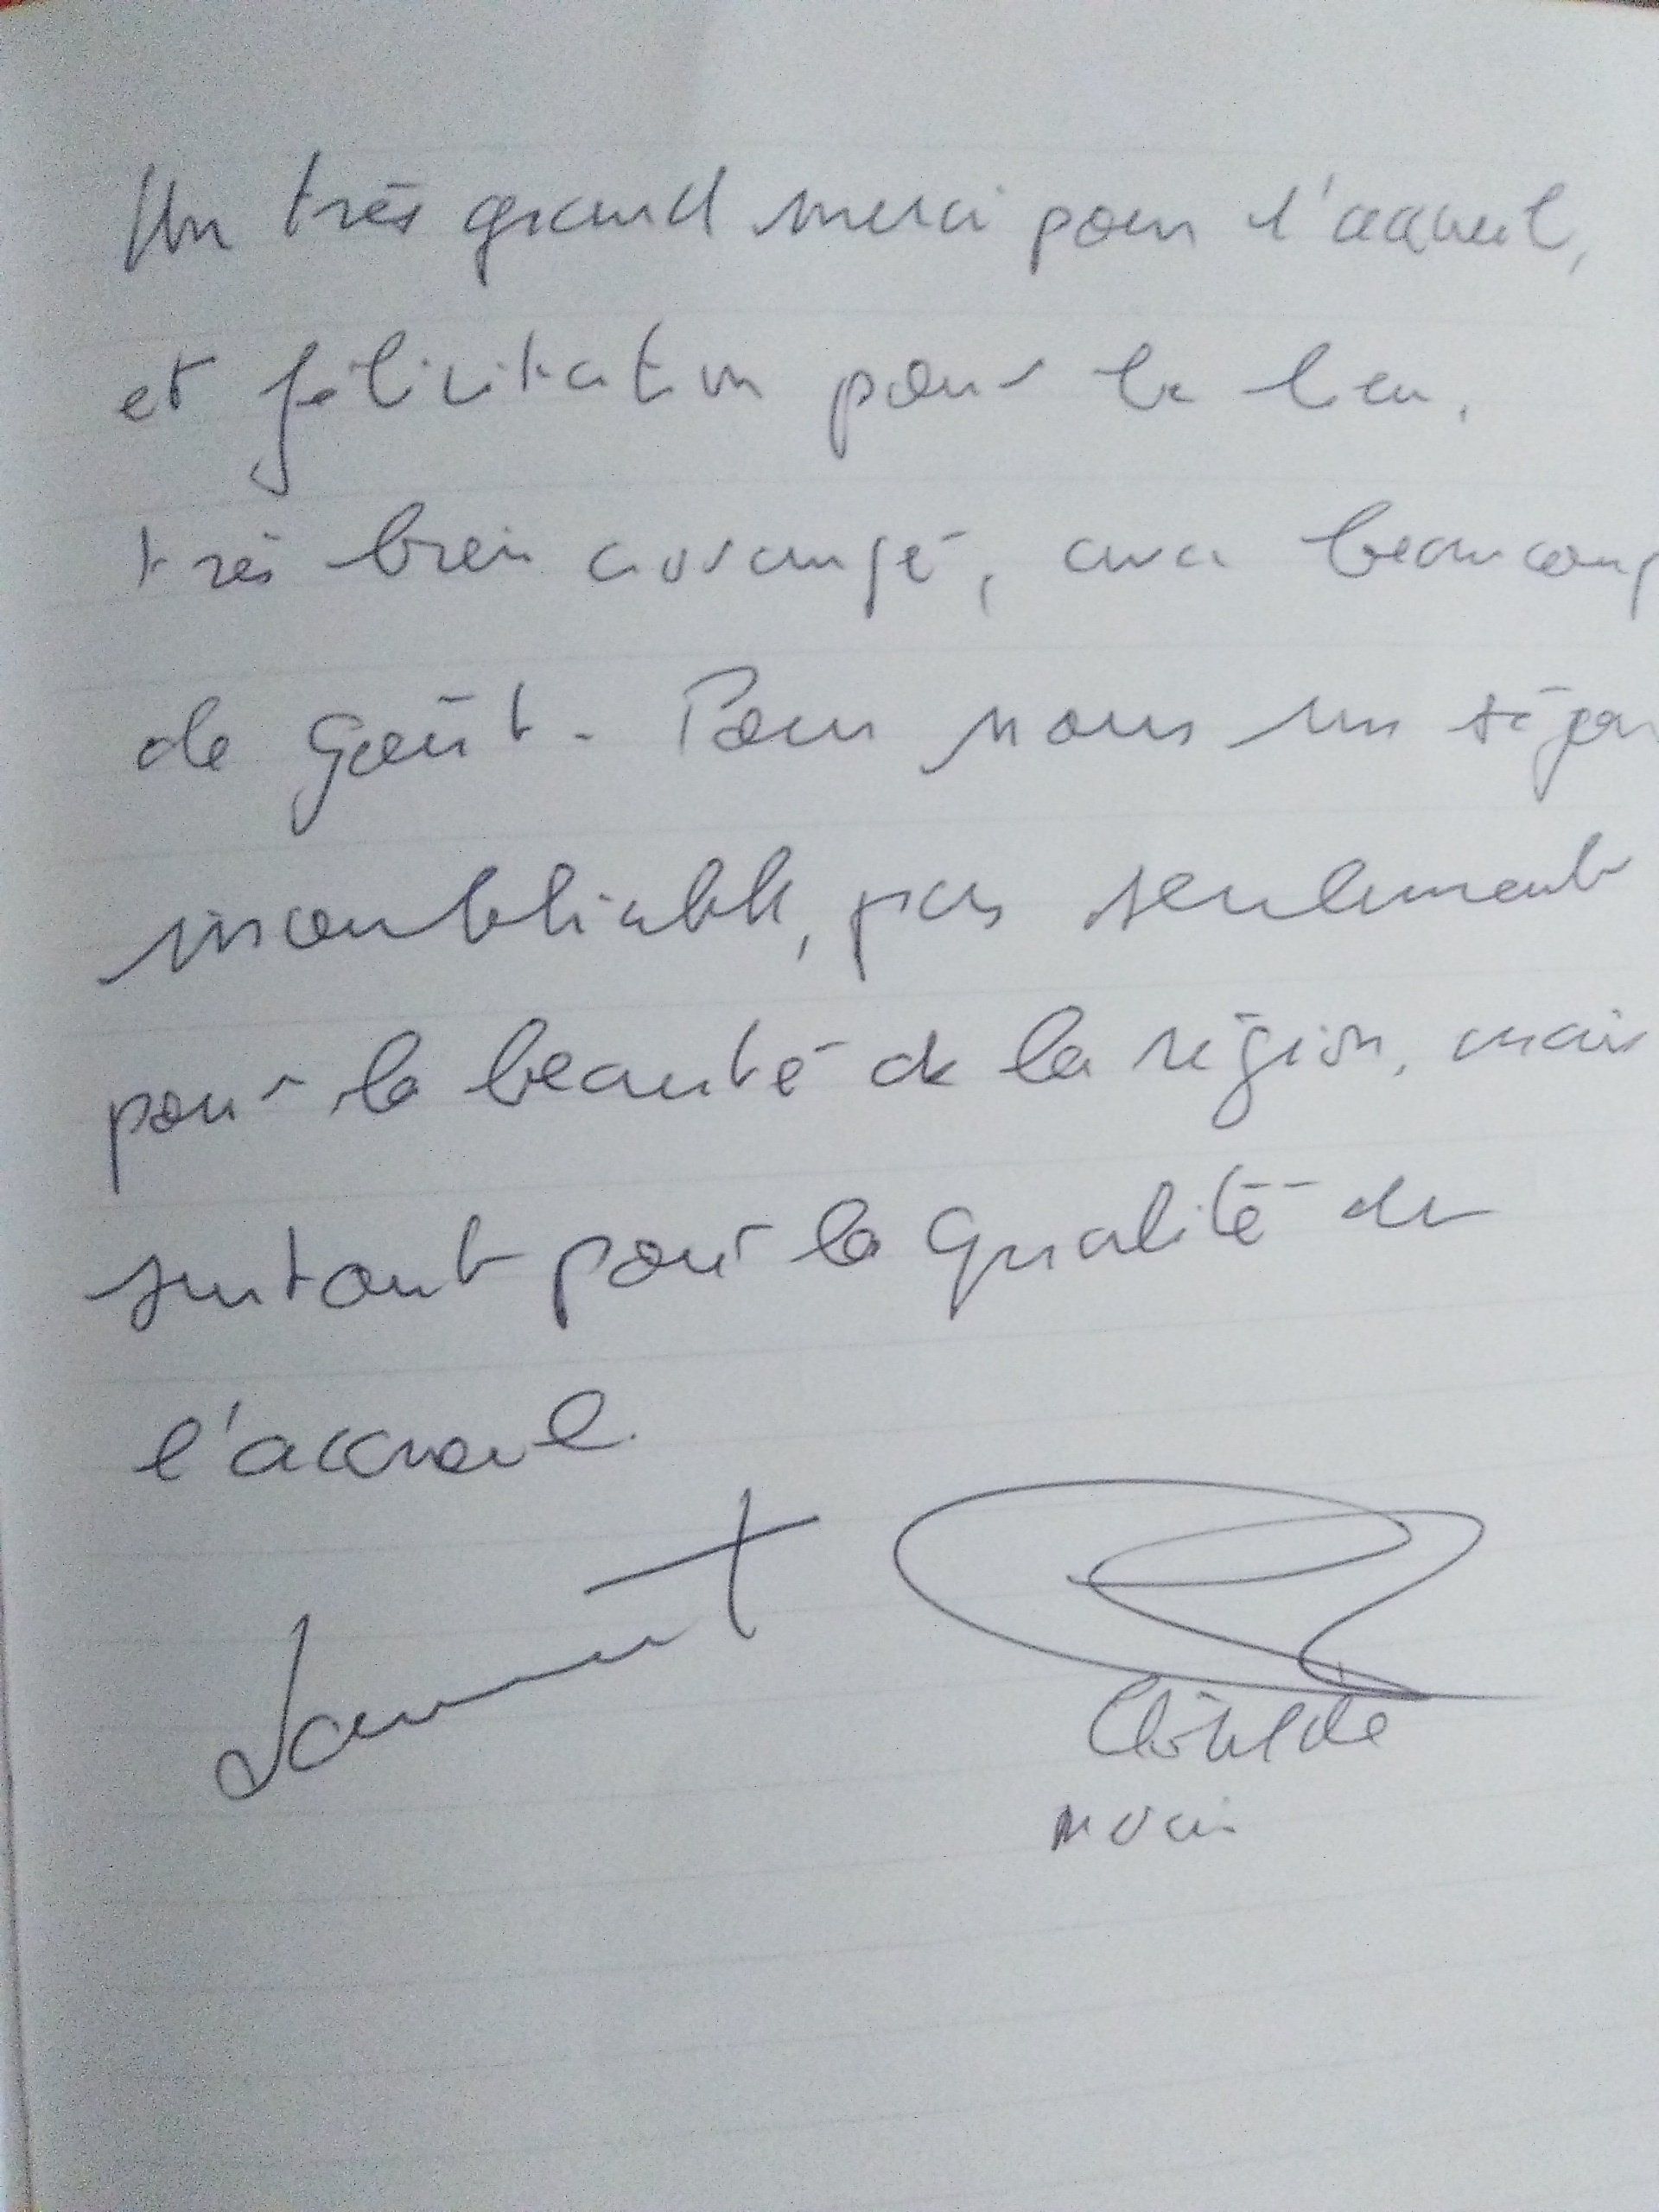 Un très grand merci pour l'accueil,
et félicitation pour le lieu,
très bien arrangé, avec beaucoup
de goût. Pour nous un séjour
inoubliable, pas seulement
pour la beauté de la région, mais
surtout pour la qualité de
l'accueil.
Laurent
Clotilde
merci